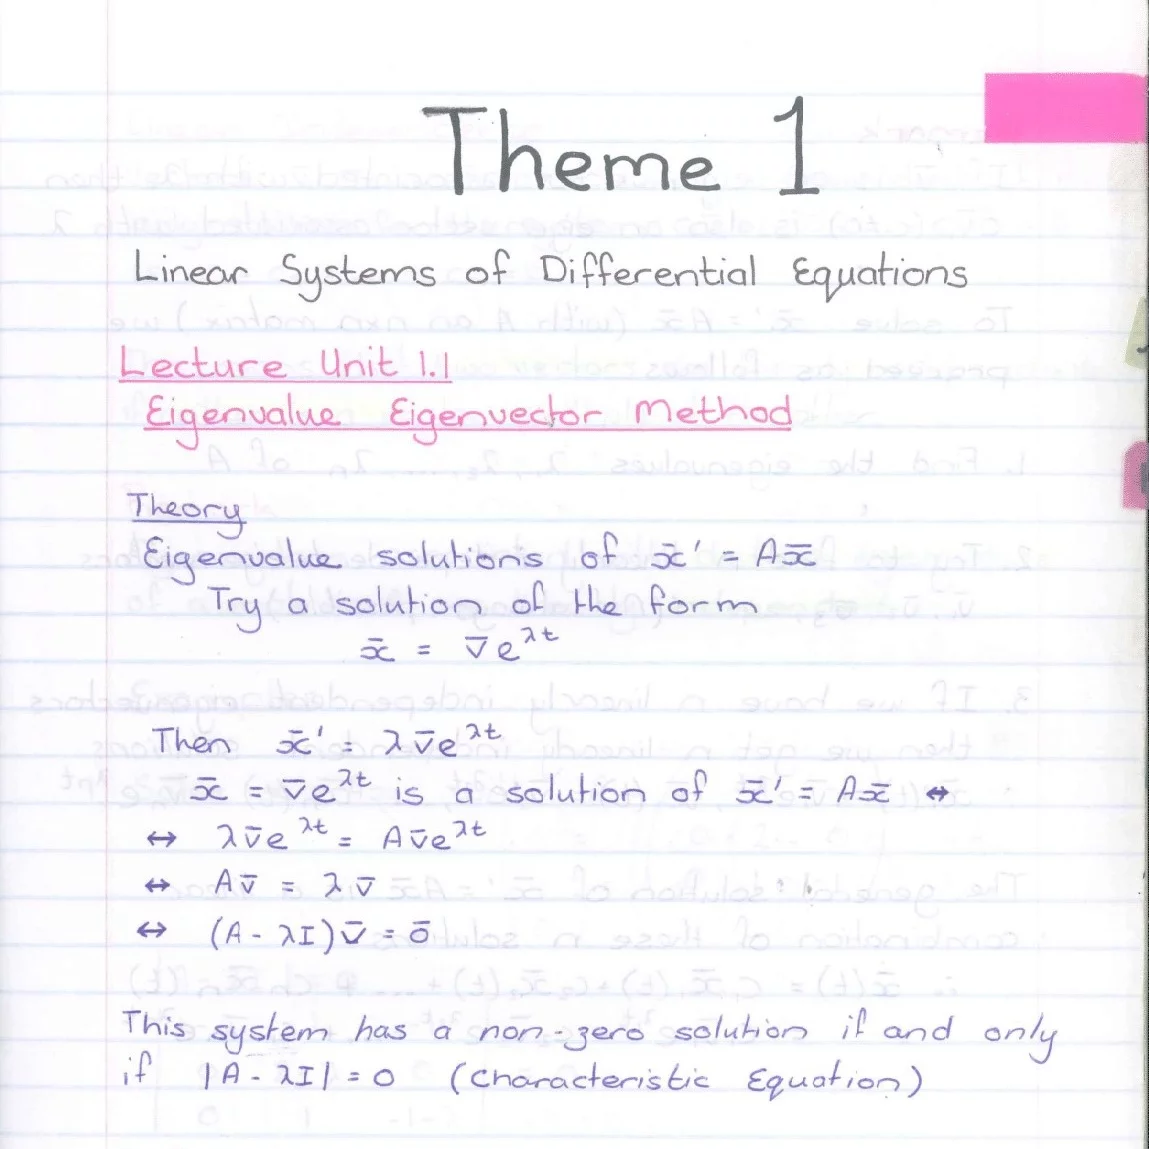 Theme 1
Linear Systems of Differential Equations
Lecture Unit 1.1
Eigenvalue Eigenvector Method
Theory
Eigenvalue solutions of x̄' = Ax̄
Try a solution of the form
x̄ = v̄e^λt
Then x̄' = λv̄e^λt
x̄ = v̄e^λt is a solution of x̄' = Ax̄ ↔
↔ λv̄e^λt = Av̄e^λt
↔ Av̄ = λv̄
↔ (A - λI)v̄ = ō
This system has a non-zero solution if and only
if |A - λI| = 0 (Characteristic Equation)